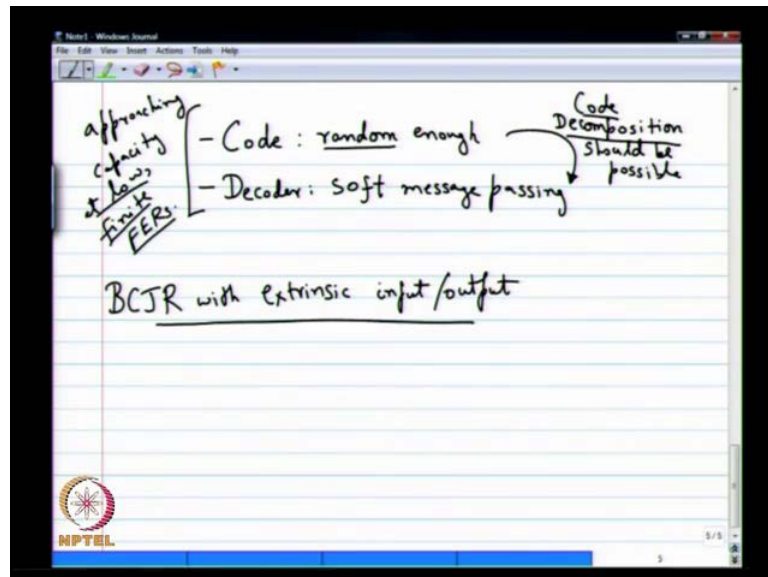 Note1 - Windows Journal
File Edit View Insert Actions Tools Help
approaching
capacity
at low,
finite
FERs.
- Code : random enough
- Decoder : soft message passing
Code
Decomposition
should be
possible
BCJR with extrinsic input/output
NPTEL
5/5
5